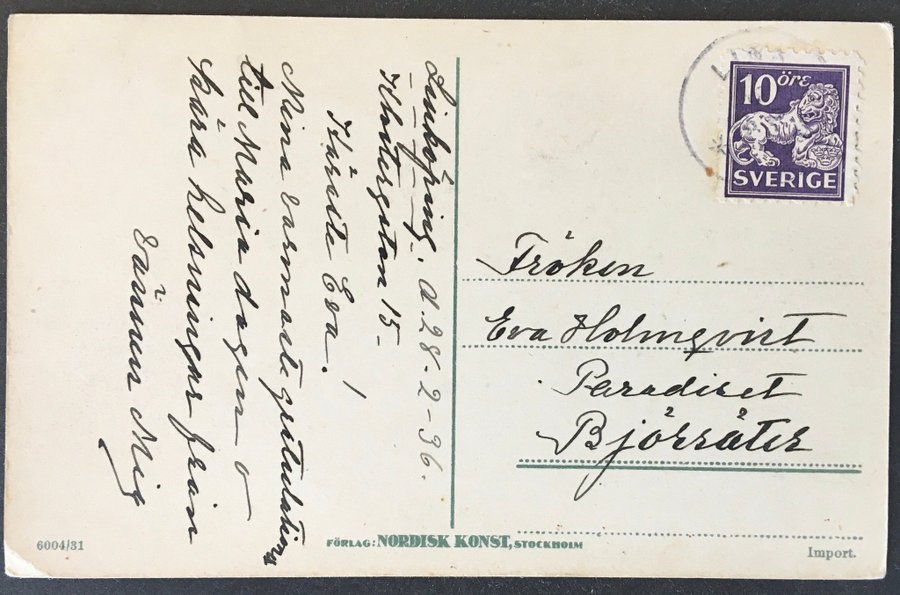 Linköping. d. 28-2-36.
Klostergatan 15-
Käraste Eva. !
Mina varmaste gratulationer
till Maria dagen o
kära helsningar från
vännen Mig
10 öre
SVERIGE
Fröken
Eva Holmqvist
Paradiset
Björsäter
6004/31
FÖRLAG: NORDISK KONST, STOCKHOLM
Import.